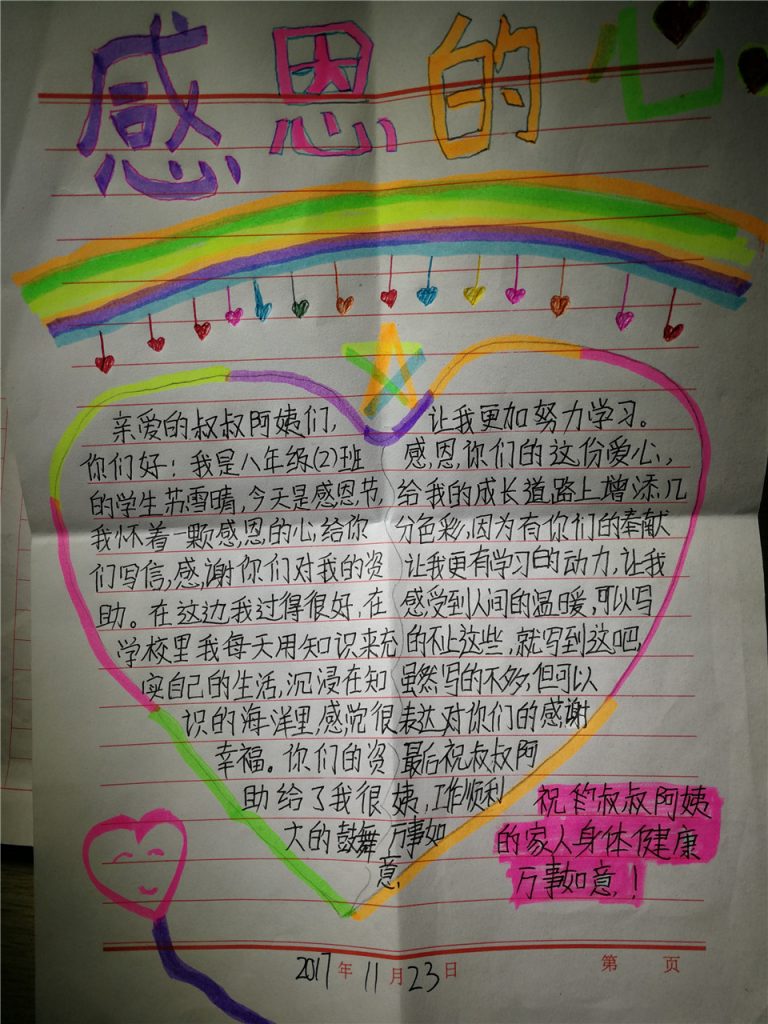 感恩的心
亲爱的叔叔阿姨们,
你们好：我是八年级(2)班
的学生苏雪晴,今天是感恩节,
我怀着一颗感恩的心,给你
们写信,感谢你们对我的资
助。在这边我过得很好,在
学校里我每天用知识来充
实自己的生活,沉浸在知
识的海洋里,感觉很
幸福。你们的资
助给了我很
大的鼓舞
让我更加努力学习。
感恩,你们的这份爱心,
给我的成长道路上增添几
分色彩,因为有你们的奉献
让我更有学习的动力,让我
感受到人间的温暖,可以写
的不止这些,就写到这吧,
虽然写的不多,但可以
表达对你们的感谢
最后祝叔叔阿
姨,工作顺利
万事如
意
祝叔叔阿姨
的家人身体健康
万事如意!
2017年11月23日
第 页